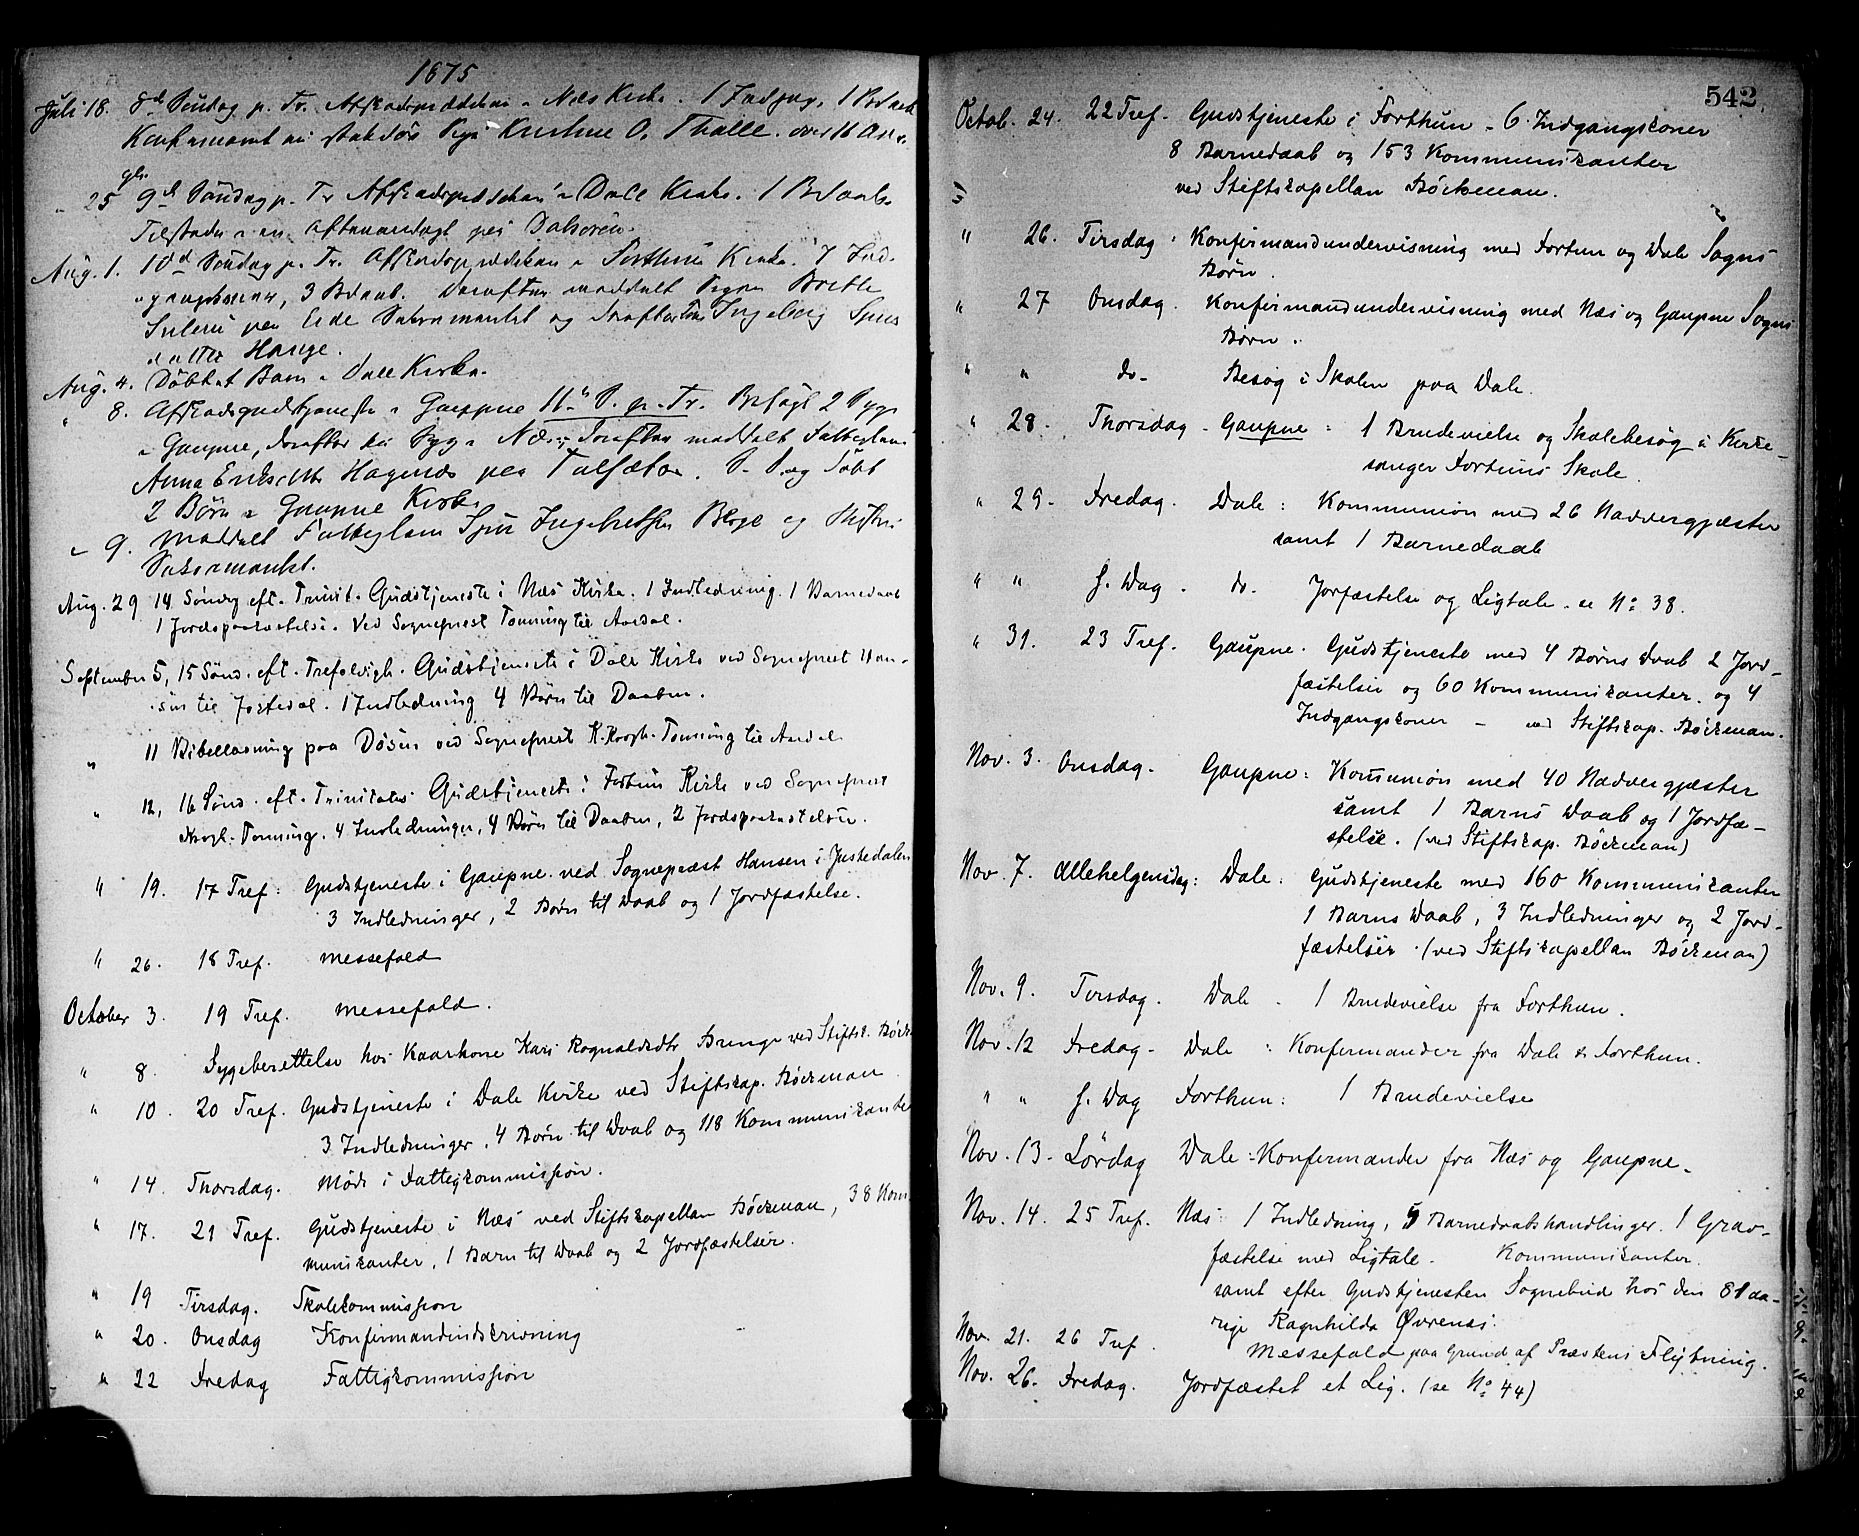 1875
Juli 18. 8d Søndag p. Tr. Afskedsprædiken i Næs Kirke. 1 Indgag. 1 Bdaab
Kristine O. Thalle. over 16 Aar.
" 25 9d Søndag p. Tr Afskedsprædiken i Dale Kirke. 1 Bdaab.
Tilstede i en Aftenandagt paa Dalsøren.
Aug. 1. 10d Søndag p. Tr. Afskedsprædiken i Forthun Kirke. 7 Ind-
gangskoner, 3 Bdaab. Derefter meddelt Pigen Brethe
paa Eide Sakramentet og derefter Ingeborg
datter Hauge.
Aug. 4. Døbt et Barn i Dale Kirke.
" 8. Afskedsgudstjeneste i Gaupne 11te S. p. Tr. Besøgt 2 Syge
i Gaupne, derefter en Syg i Næs, derefter meddelt Fattiglem
Anna Eriksdtr Hagenæs paa Talsæte. S. S. og døbt
2 Børn i Gaupne Kirke
" 9. Meddelt Fattiglem Ingebretsen Berge og Hustru
Sakramentet.
Aug. 29 14 Søndag eft. Trinit. Gudstjeneste i Næs Kirke. 1 Indledning. 1 Barnedaab
1 Jordspaakastelse. Ved Sognepræst Tonning til Aardal.
September 5, 15 Sønd. eft. Trefoldigh. Gudstjeneste i Dale Kirke ved Sognepræst Han-
sen til Jostedal. 1 Indledning 4 Børn til Daaben.
" 11 Bibellæsning paa Døsen ved Sognepræst K. Krogh-Tonning til Aardal
" 12, 16 Sønd. eft. Trinitatis Gudstjeneste i Fortun Kirke ved Sognepræst
Krogh-Tonning. 4 Indledninger, 4 Børn til Daaben, 2 Jordspaakastelser.
" 19. 17 Tref: Gudstjeneste i Gaupne ved Sognepræst Hansen i Justedalen
3 Indledninger, 2 Børn til Daab og 1 Jordfæstelse.
" 26. 18 Tref. Messefald
October 3. 19 Tref. Messefald.
" 8. Sygeberettelse hos Kaarkone Kari Rognaldsdtr Bringe ved Stiftsk. Böck
" 10. 20 Tref. Gudstjeneste i Dale Kirke ved Stiftskap. Böckman.
3 Indledninger, 4 Børn til Daab og 118 Kommunikante
" 14. Thorsdag. Møde i Fattigkommission.
" 17. 21 Tref. Gudstjeneste i Næs ved Stiftskapellan Böckman, 38 Kom
munikanter, 1 Barn til Daab og 2 Jordfæstelser.
" 19 Tirsdag. Skolekommission
" 20. Onsdag Konfirmandindskrivning
" 22 Fredag Fattigkommission
542.
Octob. 24. 22 Tref. Gudstjeneste i Forthun - 6 Indgangskoner
8 Barnedaab og 153 Kommunikanter
ved Stiftskapellan Böckman.
" 26. Tirsdag: Konfirmandundervisning med Fortun og Dale Sogns
Børn.
" 27 Onsdag. Konfirmandundervisning med Næs og Gaupne Sogns
Børn.
" " do- Besøg i Skolen paa Dale.
" 28. Thorsdag - Gaupne: 1 Brudevielse og Skolebesøg i Kirke-
sanger Fortuns Skole.
" 29. Fredag. Dale: Kommunion med 26 Nadvergjæster
samt 1 Barnedaab
" " s. Dag. do. Jorfæstelse og Ligtale. se No 38.
" 31. 23 Tref. Gaupne. Gudstjeneste med 4 Børns Daab 2 Jord-
fæstelser og 60 Kommunikanter. og 4
Indgangskoner - ved Stiftskap. Böckman.
Nov. 3. Onsdag. Gaupne: Komunion med 40 Nadvergjæster
samt 1 Barns Daab og 1 Jordfæ-
stelse. (ved Stiftskap. Böckman)
Nov. 7. Allehelgensdag: Dale: Gudstjeneste med 160 Kommunikanter
1 Barns Daab, 3 Indledninger og 2 Jord-
fæstelser. (ved Stiftskapellan Böckman)
Nov. 9. Tirsdag. Dale. 1 Brudevielse fra Forthun.
Nov. 12 Fredag. Dale: Konfermander fra Dale & Forthun.
" " s. Dag Forthun: 1 Brudevielse
Nov. 13. Lørdag Dale: Konfermander fra Næs og Gaupne.
Nov. 14. 25 Tref. Næs: 1 Indledning, 5 Barnedaabshandlinger. 1 Grav-
fæstelse med Ligtale. Kommunikanter.
samt efter Gudstjenesten Sognebud hos den 81 aa-
rige Ragnhilda Øvrenæs.
Nov. 21. 26 Tref. Messefald paa Grund af Præstens Flytning.
Nov. 26. Fredag. Jordfæstet et Lig. (se No 44)